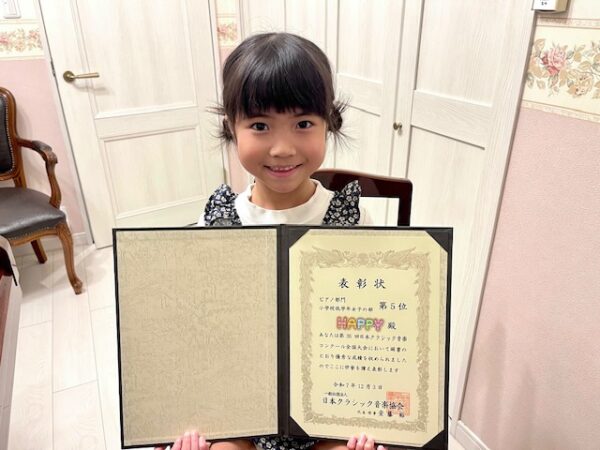 表彰状
ピアノ部門
小学校低学年女子の部 第5位
HAPPY 殿
あなたは第35回日本クラシック音楽
コンクール全国大会において頭書の
とおり優秀な成績を収められました
のでここに栄誉を讃え表彰します
令和7年12月3日
一般社団法人
日本クラシック音楽協会
代表理事